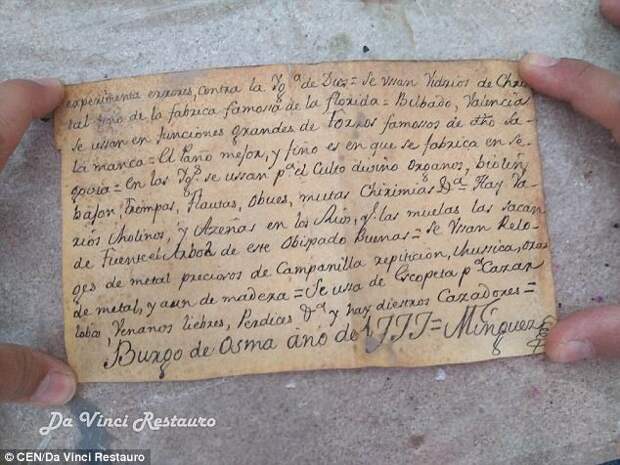 experimenta errores, contra la Ygª de Dios = Se ussan Vidrios de Chris
tal fino de la fabrica famossa de la florida = Bilbado, Valencia
se ussan en funciones grandes de toros famosos de dho Sa
la manca = El Paño mejor, y fino es en que se fabrica en se
govia = en las Ygs se ussan pª el Culto divino Organos, biolin
bajon, trompas, flautas, Obues, mutas Chirimias &ª = Hay Va
rios Molinos, y Azeñas en los Rios, q. las muelas las sacan
de Fuentcel Arbol de este Obispado Buenas = Se Vsan Relo-
ges de metal precioros de Campanilla repiticion, Mussica, otros
de metal, y aun de madera = Se ussa de Escopeta pª Cazar
lobos, Venanos liebres, Perdices &ª y hay diestros Cazadores =
Burgo de Osma año de 1777 = Minguez
Da Vinci Restauro
© CEN/Da Vinci Restauro